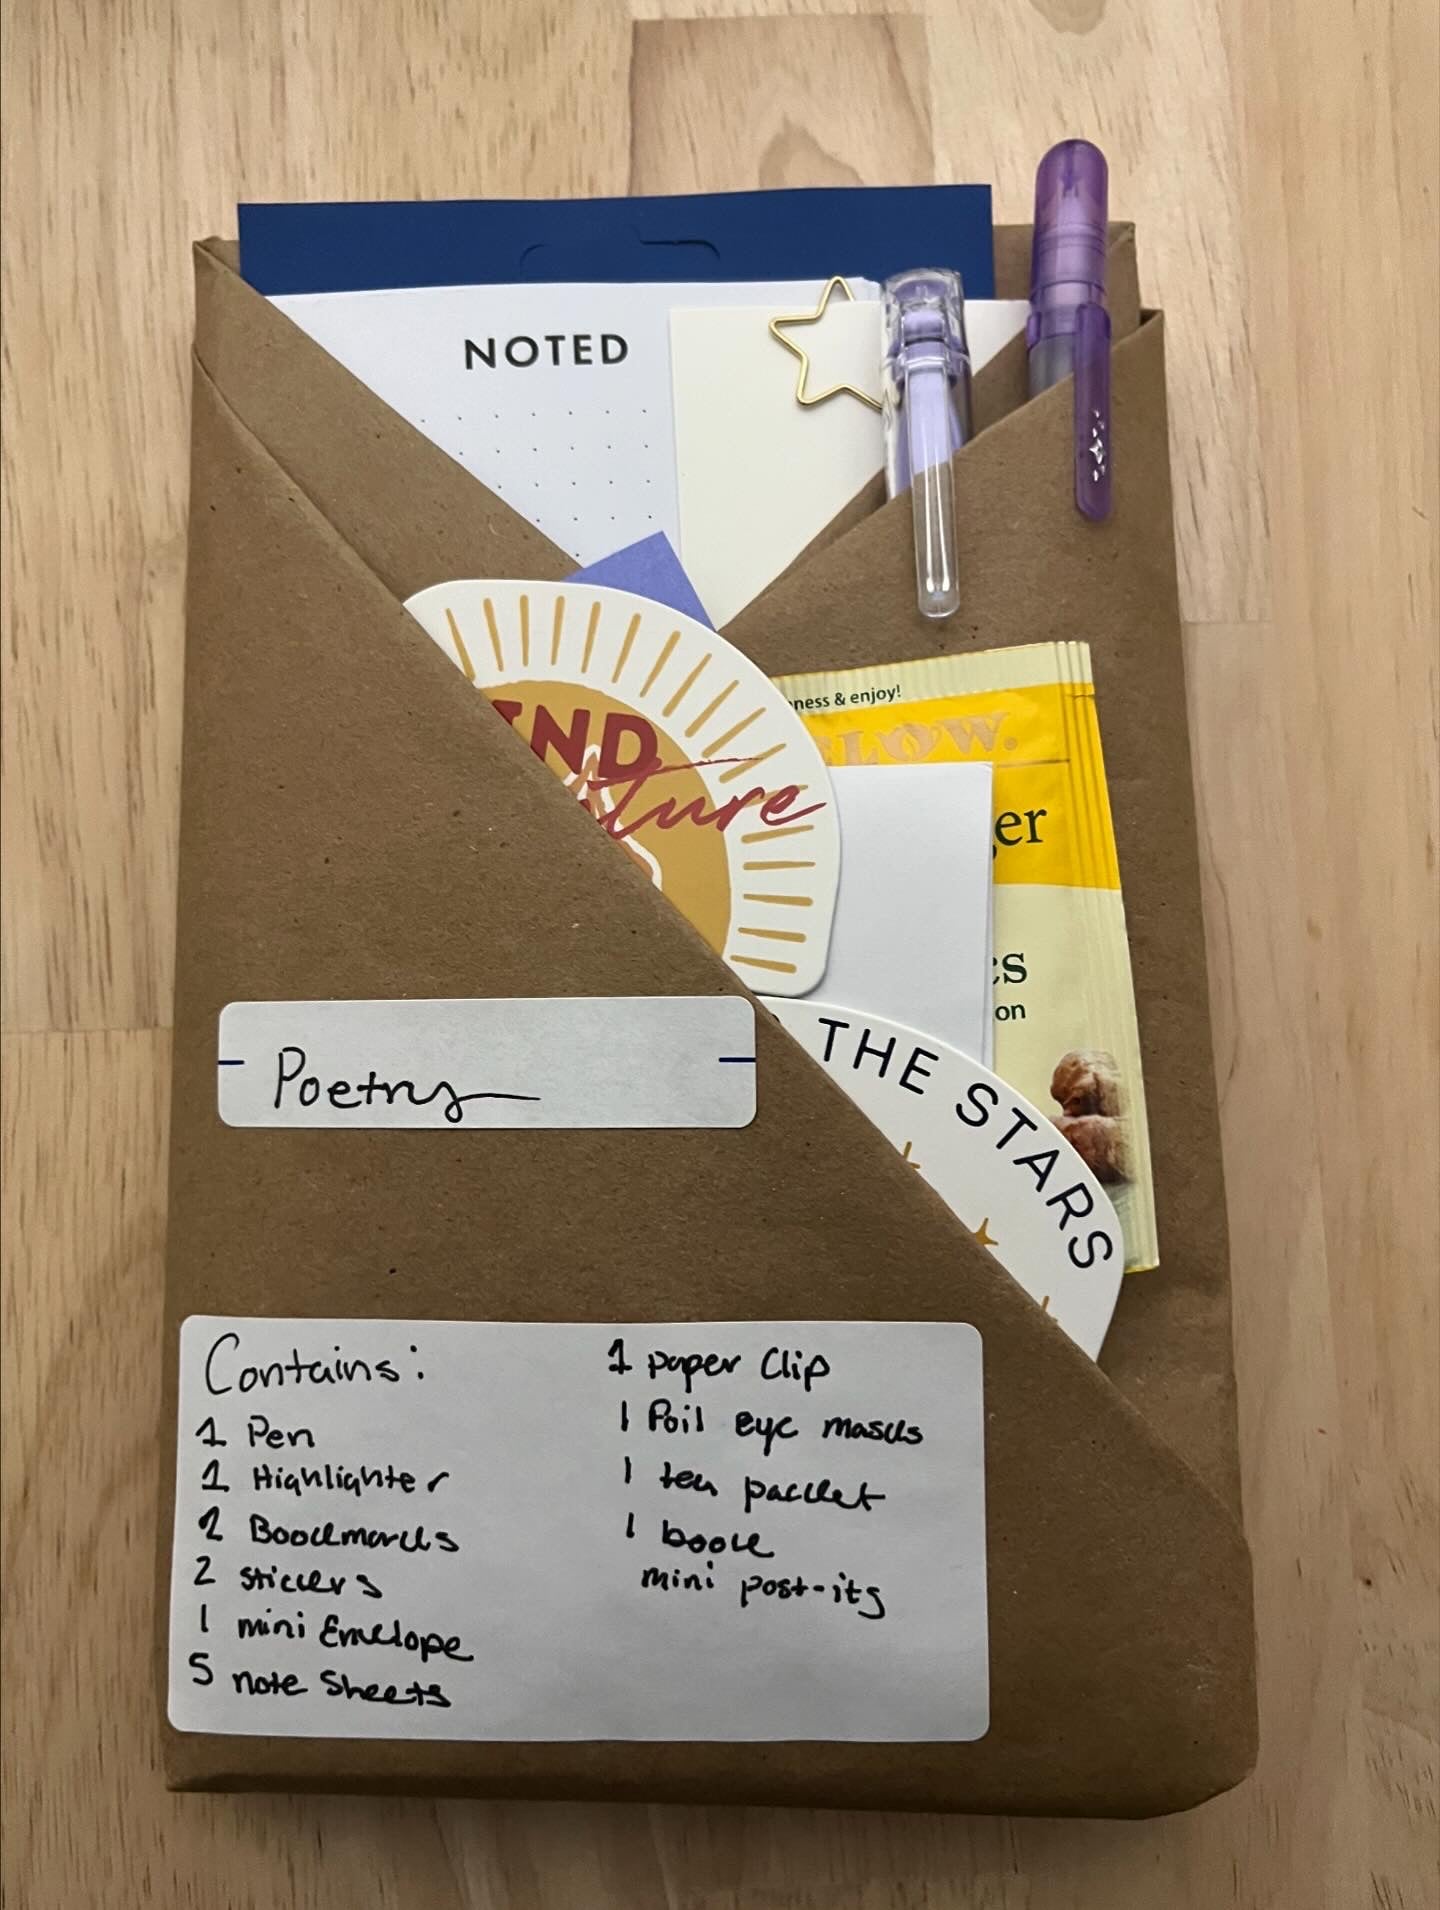 NOTED
ness & enjoy!
LOW.
IND
ture
er
cs
on
THE STARS
Poetry
Contains:
1 Pen
1 Highlighter
2 Bookmarks
2 stickers
1 mini Envelope
5 note Sheets
1 paper Clip
1 Foil eye masks
1 tea packet
1 book
mini post-its